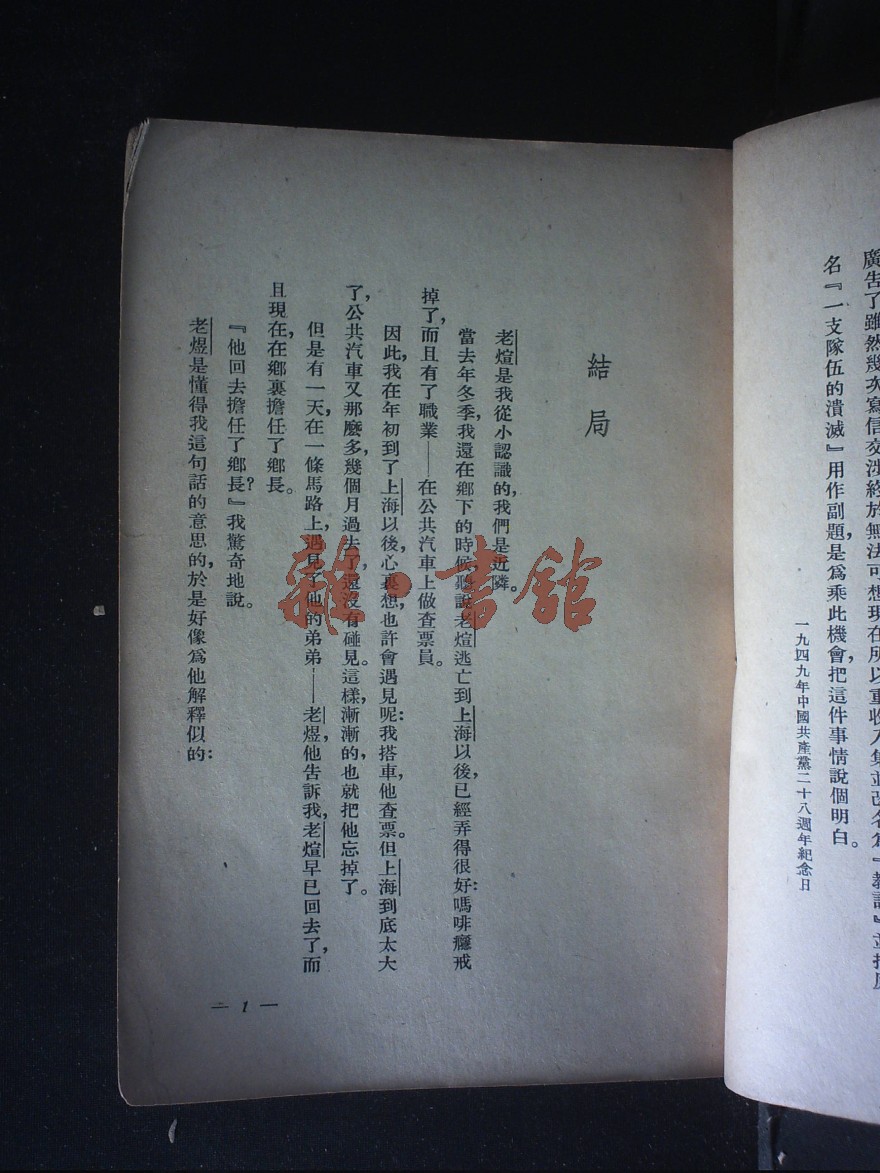 廣告了雖然幾次寫信交涉終於無法可想現在所以重收入集並改名爲『教訓』並把原
名『一支隊伍的潰滅』用作副題是爲乘此機會，把這件事情說個明白。
一九四九年中國共產黨二十八週年紀念日
結局
老煊是我從小認識的，我們是近隣。
當去年冬季，我還在鄉下的時候，聽說老煊逃亡到上海以後，已經弄得很好：嗎啡癮戒
掉了，而且有了職業——在公共汽車上做查票員。
因此，我在年初到了上海以後，心裏想，也許會遇見呢：我搭車，他查票。但上海到底太大
了，公共汽車又那麼多，幾個月過去了，還沒有碰見。這樣，漸漸的，也就把他忘掉了。
但是有一天，在一條馬路上，遇見了他的弟弟——老煜，他告訴我，老煊早已回去了，而
且現在，在鄉裏擔任了鄉長。
『他回去擔任了鄉長？』我驚奇地說。
老煜是懂得我這句話的意思的，於是好像爲他解釋似的：
— 1 —
雜·書館